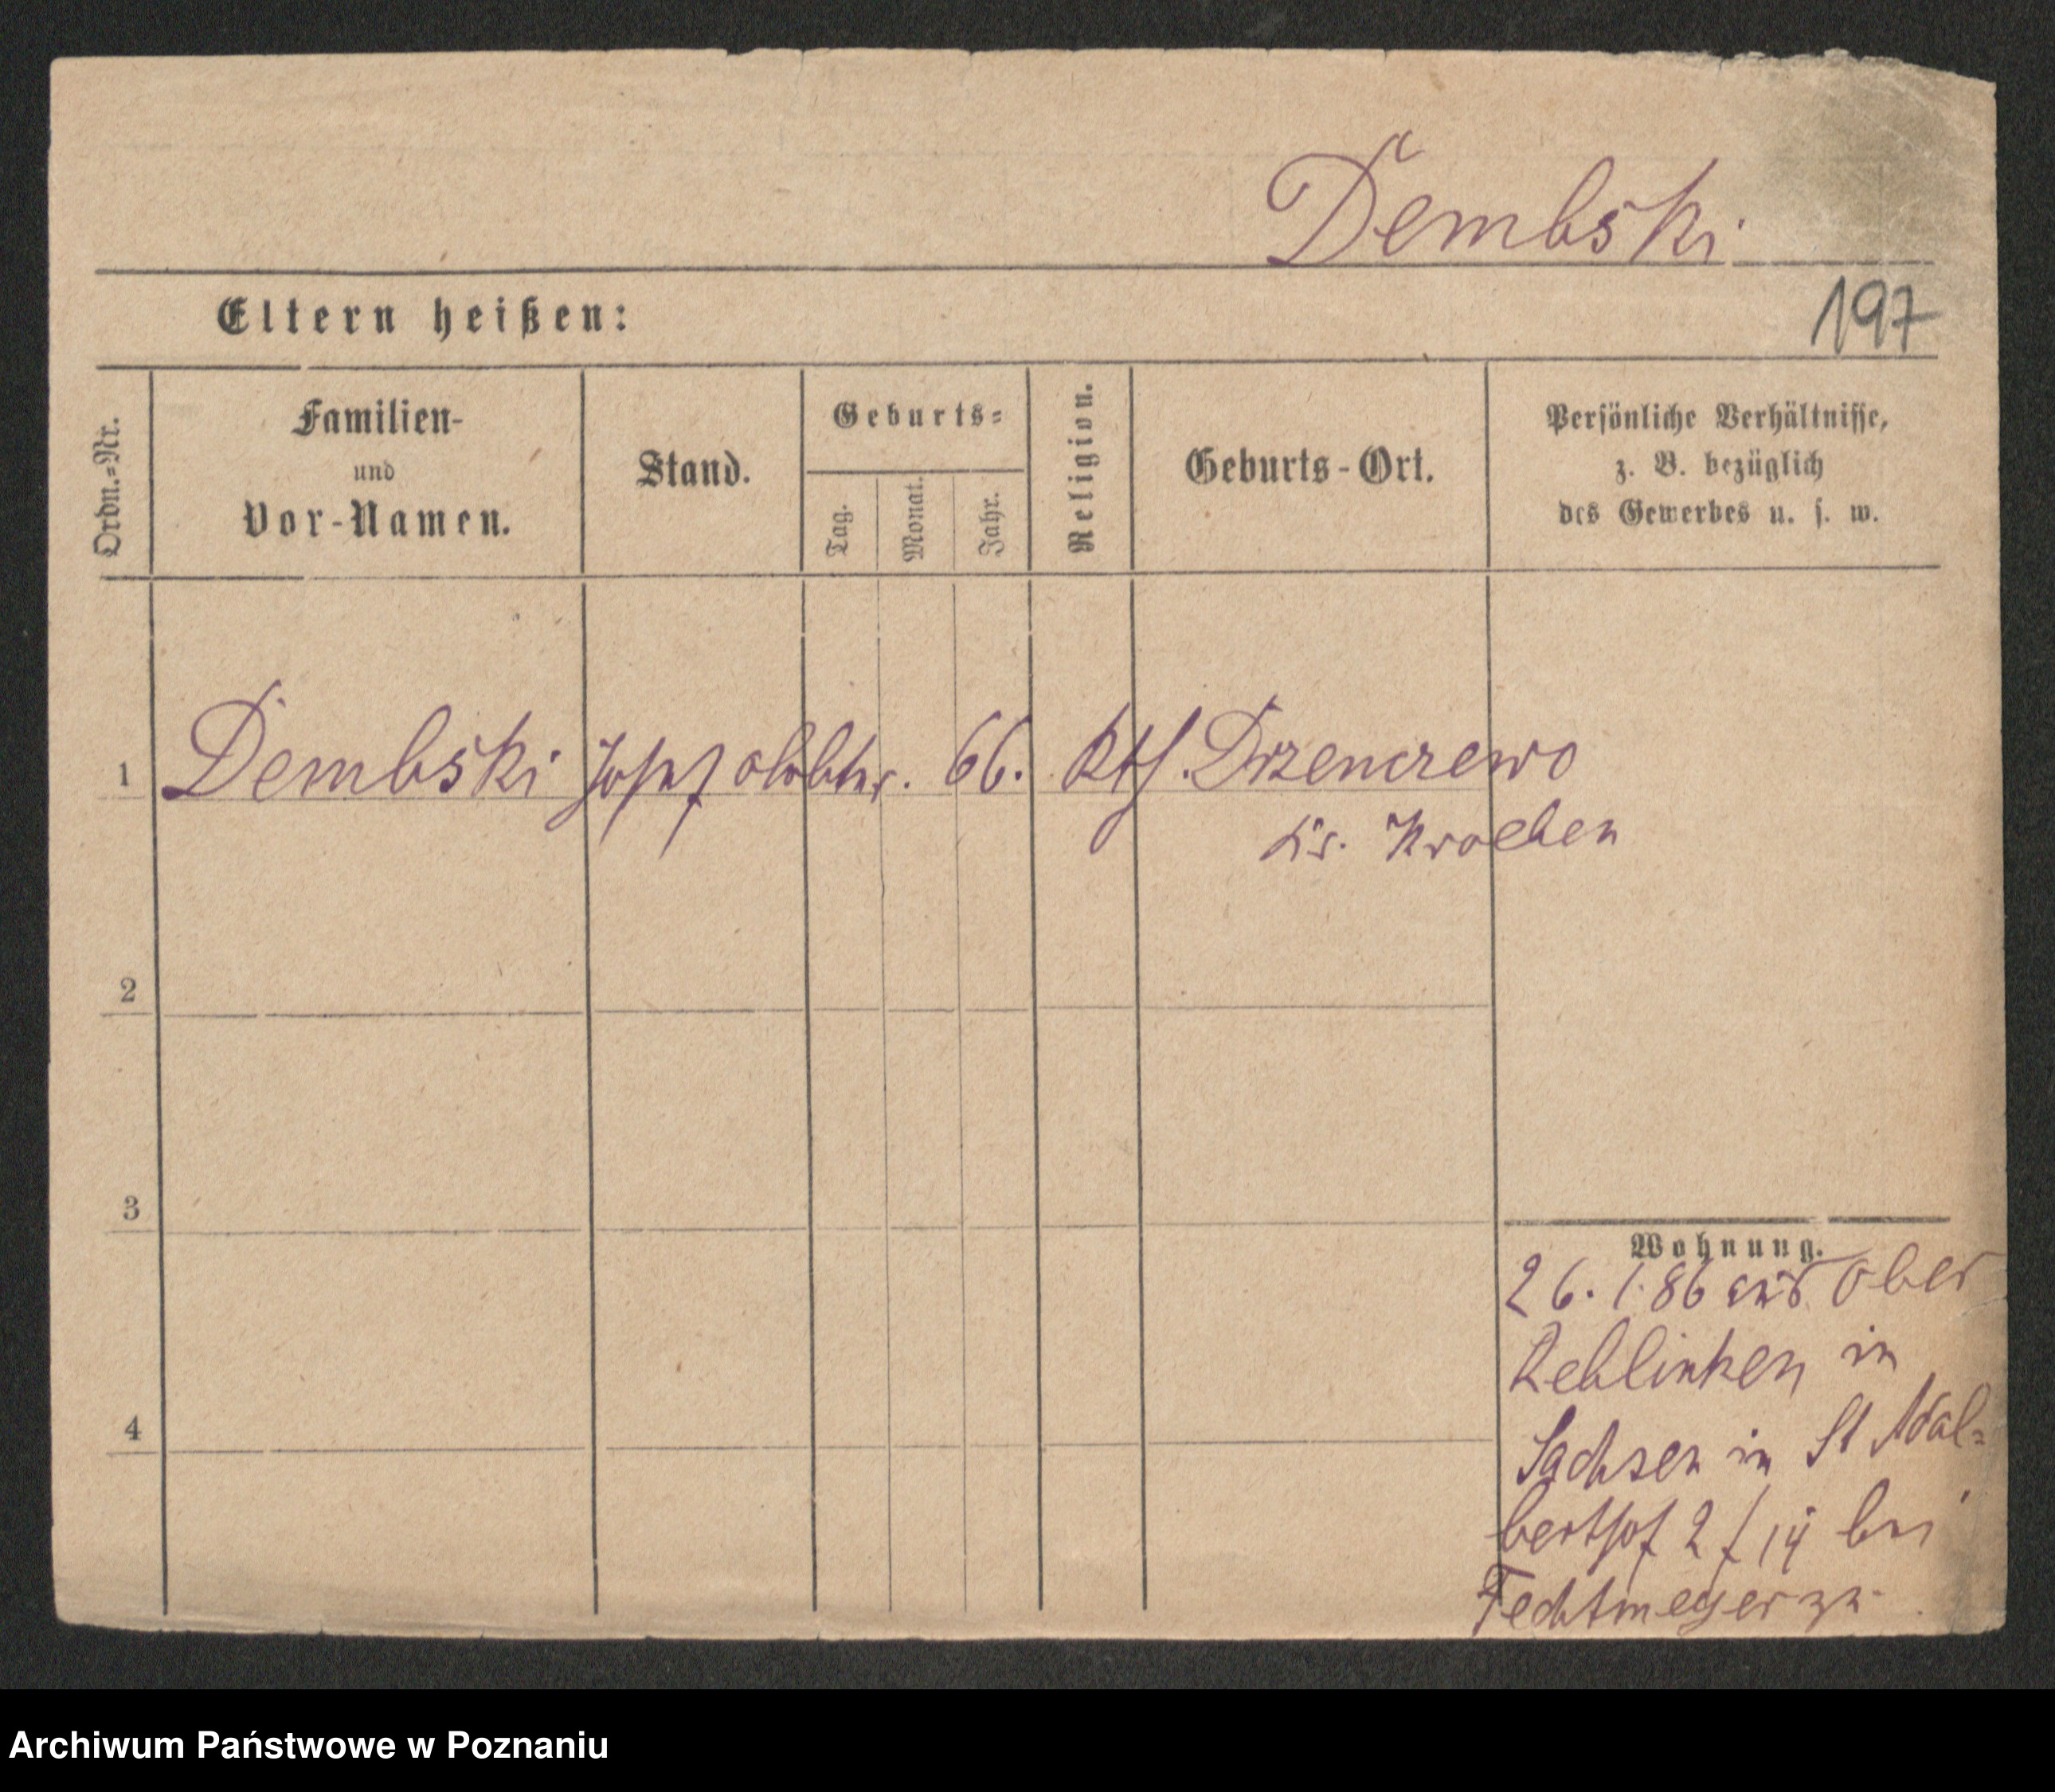 Dembski
197
Eltern heißen:
Ordn.=Nr.
Familien-
und
Vor-Namen.
Stand.
Geburts=
Tag.
Monat.
Jahr.
Religion.
Geburts-Ort.
Persönliche Verhältnisse,
z. B. bezüglich
des Gewerbes u. s. w.
1 Dembski Josef 66. kth. Drzenczewo
Kr. Kroeben
2
3
4
Wohnung.
26. 1. 86 aus Ober
in
Sachsen in St Adal=
bertstr 2 / bei
Fechtmeyer zu
Archiwum Państwowe w Poznaniu